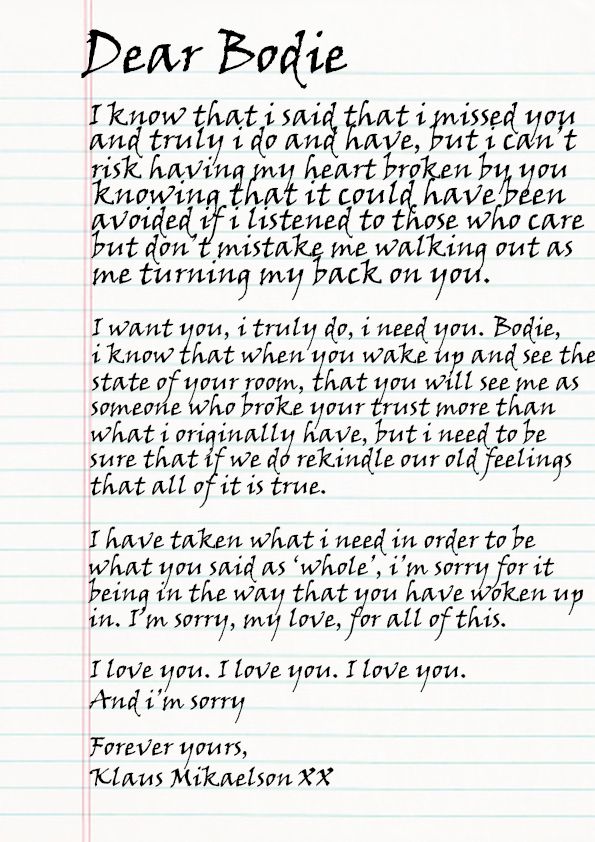 Dear Bodie
I know that i said that i missed you
and truly i do and have, but i can't
risk having my heart broken by you
knowing that it could have been
avoided if i listened to those who care
but don't mistake me walking out as
me turning my back on you.
I want you, i truly do, i need you. Bodie,
i know that when you wake up and see the
state of your room, that you will see me as
someone who broke your trust more than
what i originally have, but i need to be
sure that if we do rekindle our old feelings
that all of it is true.
I have taken what i need in order to be
what you said as 'whole', i'm sorry for it
being in the way that you have woken up
in. I'm sorry, my love, for all of this.
I love you. I love you. I love you.
And i'm sorry
Forever yours,
Klaus Mikaelson XX